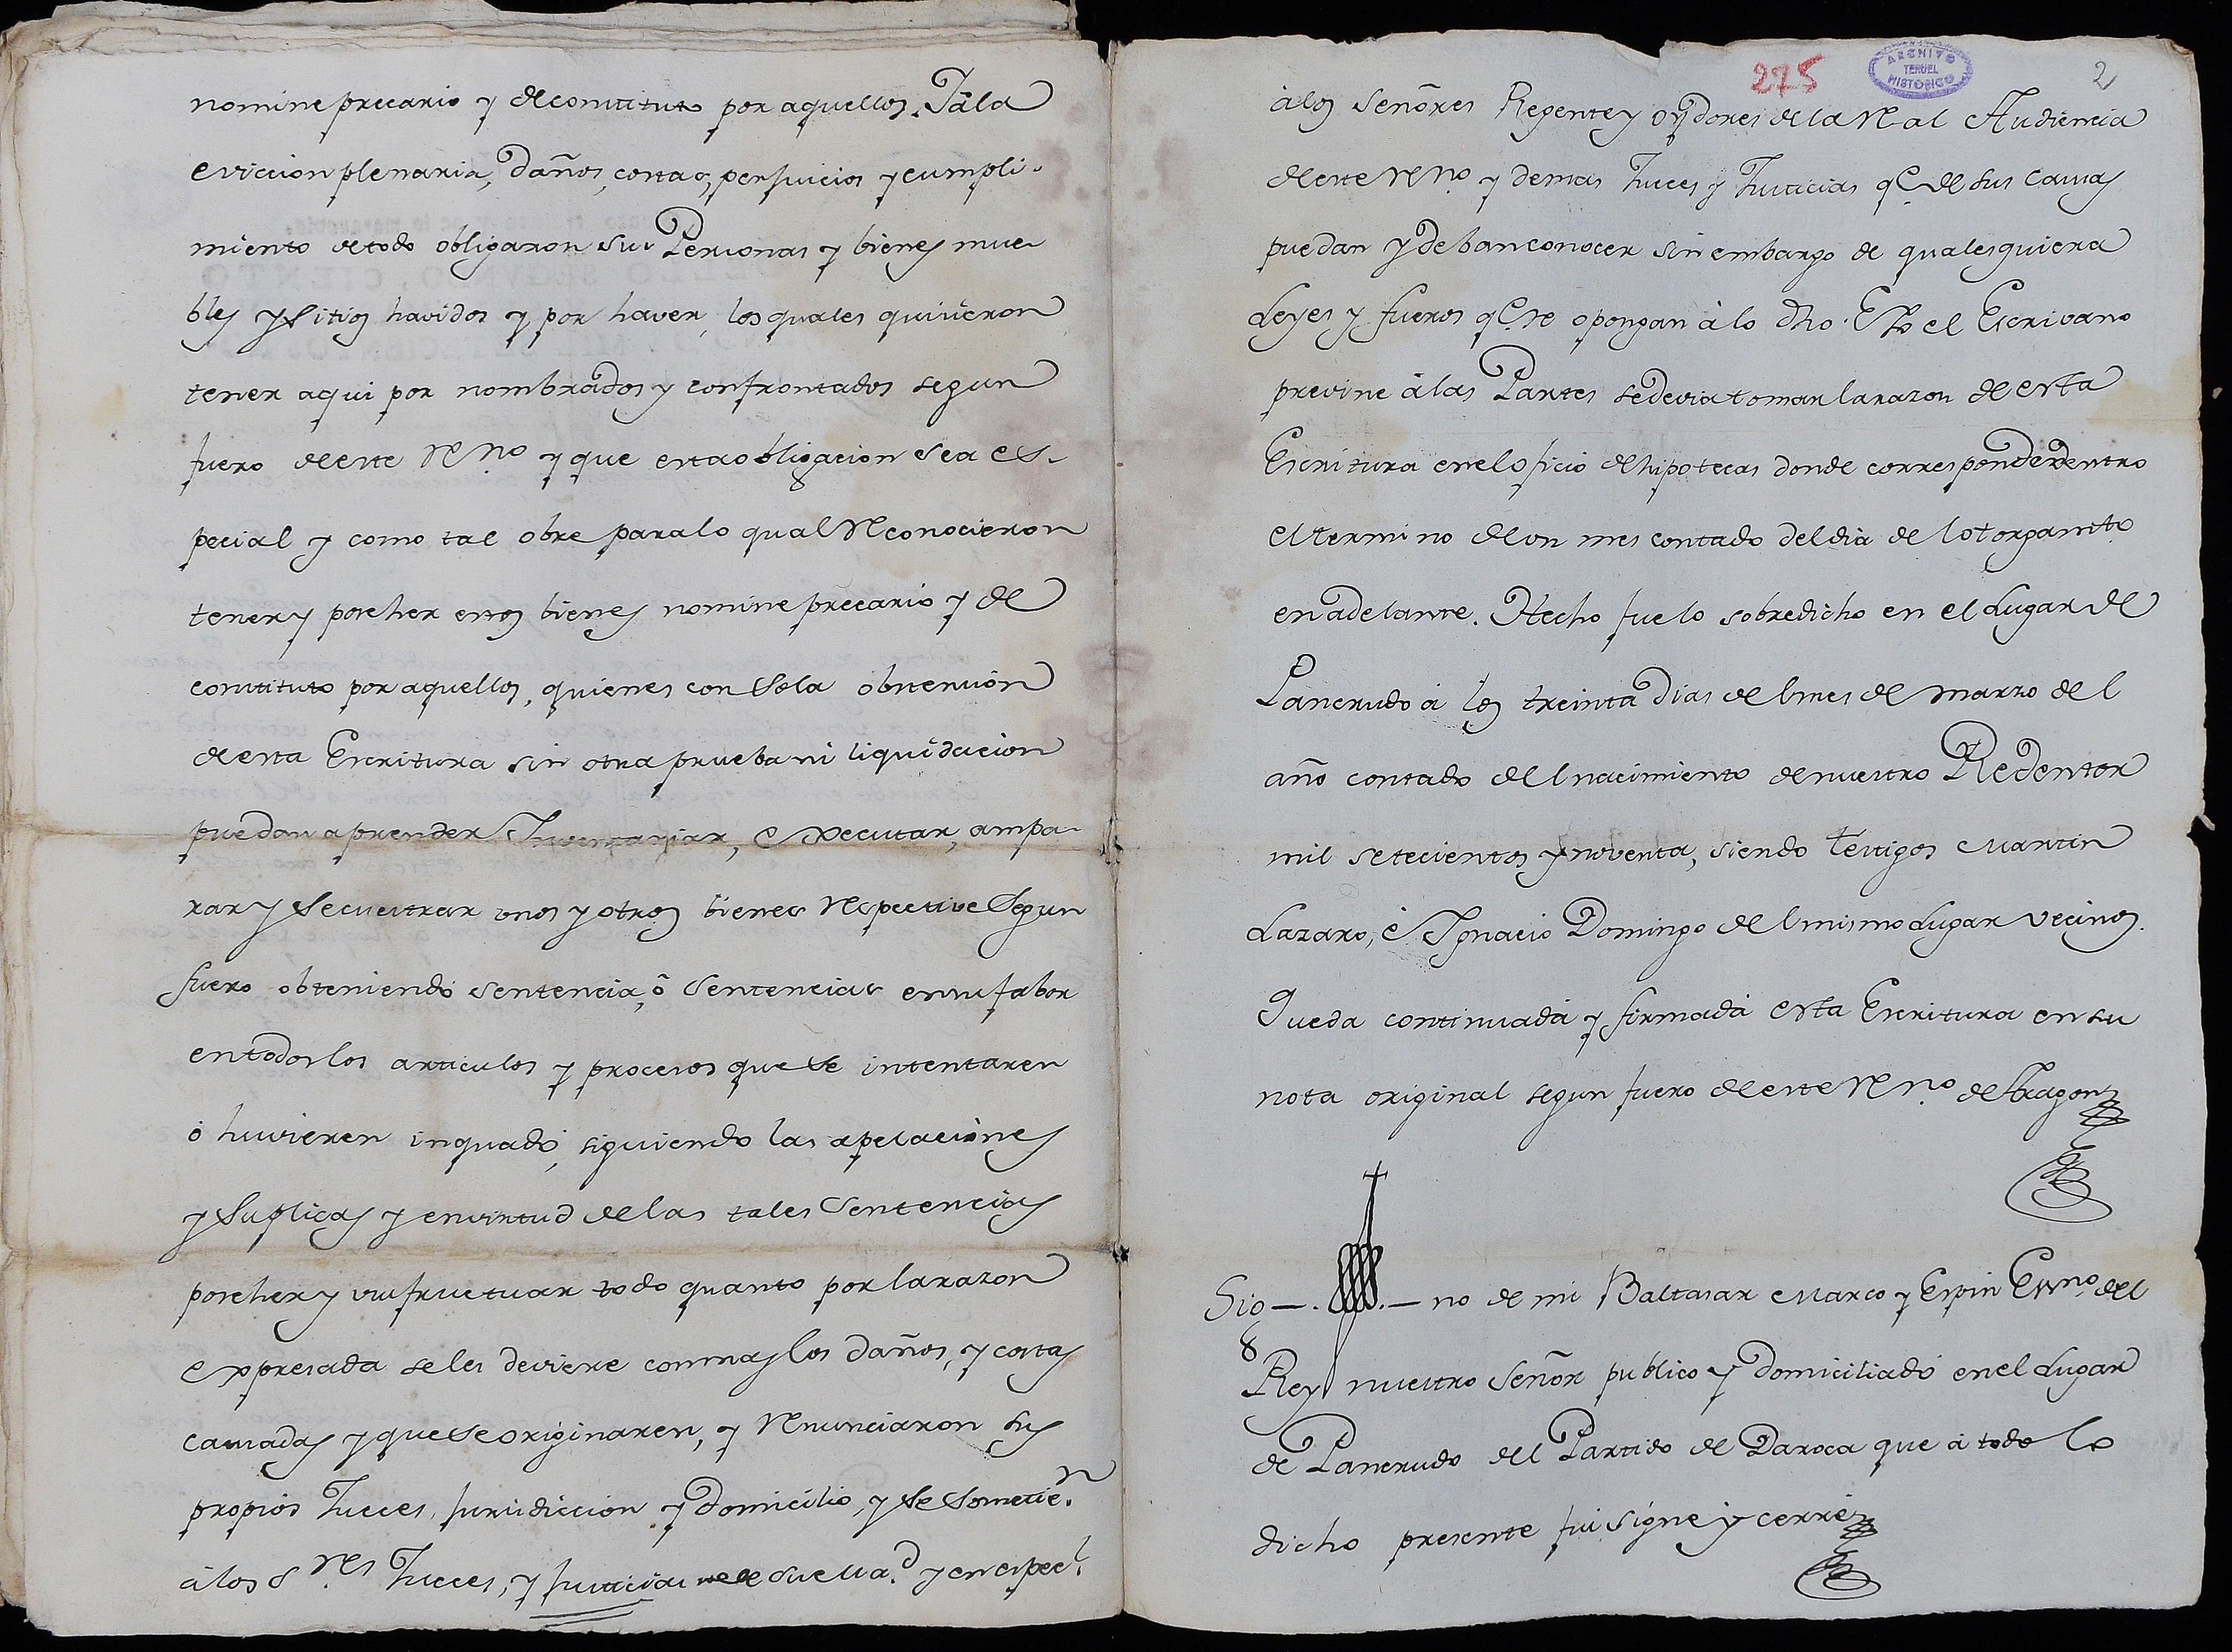 nomine precario y de constituto por aquellos. Y à la
eviccion plenaria, daños, costas, perjuicios y cumpli-
miento de todo obligaron sus Personas y bienes mue
bles y sitios havidos y por haver, los quales quisieron
tener aqui por nombrados y confrontados segun
fuero de este Rno. y que esta obligacion sea es-
pecial y como tal obre para lo qual Reconocieron
tener y posseher estos bienes nomine precario y de
constituto por aquellos, quienes con sola obtension
de esta Escritura sin otra prueba ni liquidacion
puedan aprender Inventariar, executar, ampa-
rar y secuestrar unos y otros bienes Respective segun
fuero obteniendo sentencia, ò sentencias en su fabor
en todos los articulos y procesos que se intentaren
ò huvieren inquado, siguiendo las apelaciones
y suplicas y en virtud de las tales sentencias
posseher y usufructuar todo quanto por la razon
expresada se les deviere con mas los daños, y costas
causadas y que se originaren, y Renunciaron sus
propios Jueces, jurisdiccion y domicilio, y se sometien.
à los Sres. Jueces, y justicias de su Mad. y en especl.
275
ARCHIVO
TERUEL
HISTORICO
2
à los Señores Regente y oydores de la Real Audiencia
de este Rno. y demas Jueces y Justicias qe. de sus causas
puedan y deban conocer sin embargo de qualesquiera
Leyes y fueros qe. se opongan à lo dho. E Yo el Escrivano
previne à las Partes se devia tomar la razon de esta
Escritura en el oficio de hipotecas donde corresponde dentro
el termino de un mes contado del dia de l otorgamto.
en adelante. Hecho fue lo sobredicho en el Lugar de
Pancrudo à los treinta dias de l mes de Marzo de l
año contado de l nacimiento de nuestro Redentor
mil setecientos y noventa, siendo testigos Martin
Lazaro, è Ignacio Domingo de l mismo Lugar vecinos.
Queda continuada y firmada esta Escritura en su
nota original segun fuero de este Rno. de Aragon
Sig—.—no de mi Baltasar Marco y Espin Essno. del
Rey nuestro Señor publico y domiciliado en el Lugar
de Pancrudo del Partido de Daroca que à todo lo
dicho presente fui signè y cerrè